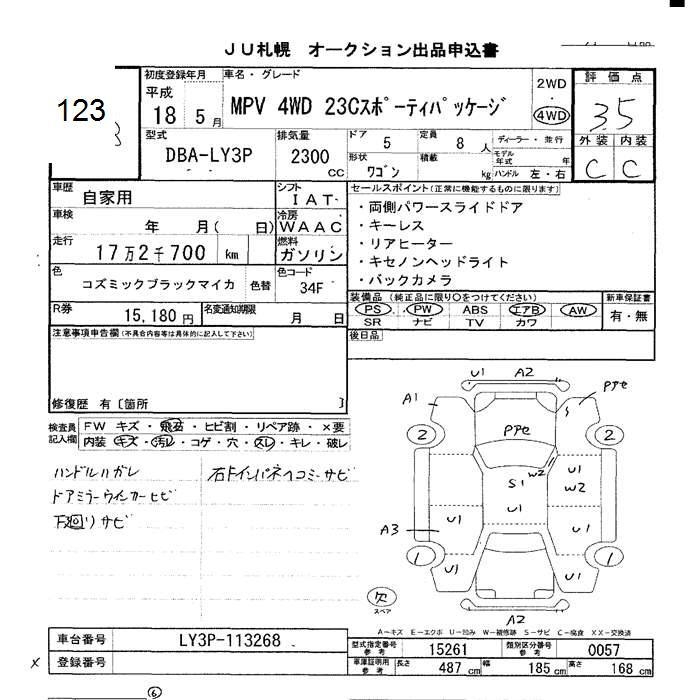 JU札幌 オークション出品申込書
123
初度登録年月
平成
18 5月
車名・グレード
MPV 4WD 23Cスポーティパッケージ
2WD
4WD
評価点
3.5
外装 内装
C C
型式
DBA-LY3P
排気量
2300
CC
ドア 5
定員 8人
ディーラー・並行
モデル年式 年
形状 ワゴン
積載 kg
ハンドル 左・右
車歴 自家用
シフト IAT
車検 年 月( 日)
冷房 WAAC
走行 17万2千700 km
燃料 ガソリン
色 コズミックブラックマイカ 色替
色コード 34F
R券 15,180円
名変通知期限 月 日
セールスポイント(正常に機能するものに限ります)
・両側パワースライドドア
・キーレス
・リアヒーター
・キセノンヘッドライト
・バックカメラ
装備品(純正品に限り○をつけてください)
PS PW ABS エアB AW
SR ナビ TV カワ
新車保証書
有・無
注意事項申告欄(不具合内容等は具体的に記入して下さい)
後日品
修復歴 有〔箇所 〕
検査員記入欄
FW キズ・飛石・ヒビ割・リペア跡・×要
内装 キズ・汚レ・コゲ・穴・スレ・キレ・破レ
ハンドルハガレ
ドアミラーウインカーヒビ
下廻りサビ
右ドインパネヘコミ-サビ
U1 A2
A1 PPe
S
2 PPe 2
W2
S1 U1
W2
U1 U1
A3 U1
1 1
U1 U1
欠
スペア
A2
A-キズ E-エクボ U-凹み W-補修跡 S-サビ C-腐食 XX-交換済
車台番号 LY3P-113268
登録番号
X
型式指定番号 参考 15261
類別区分番号 参考 0057
車庫証明用 参考 長さ 487cm 幅 185cm 高さ 168cm
⑥